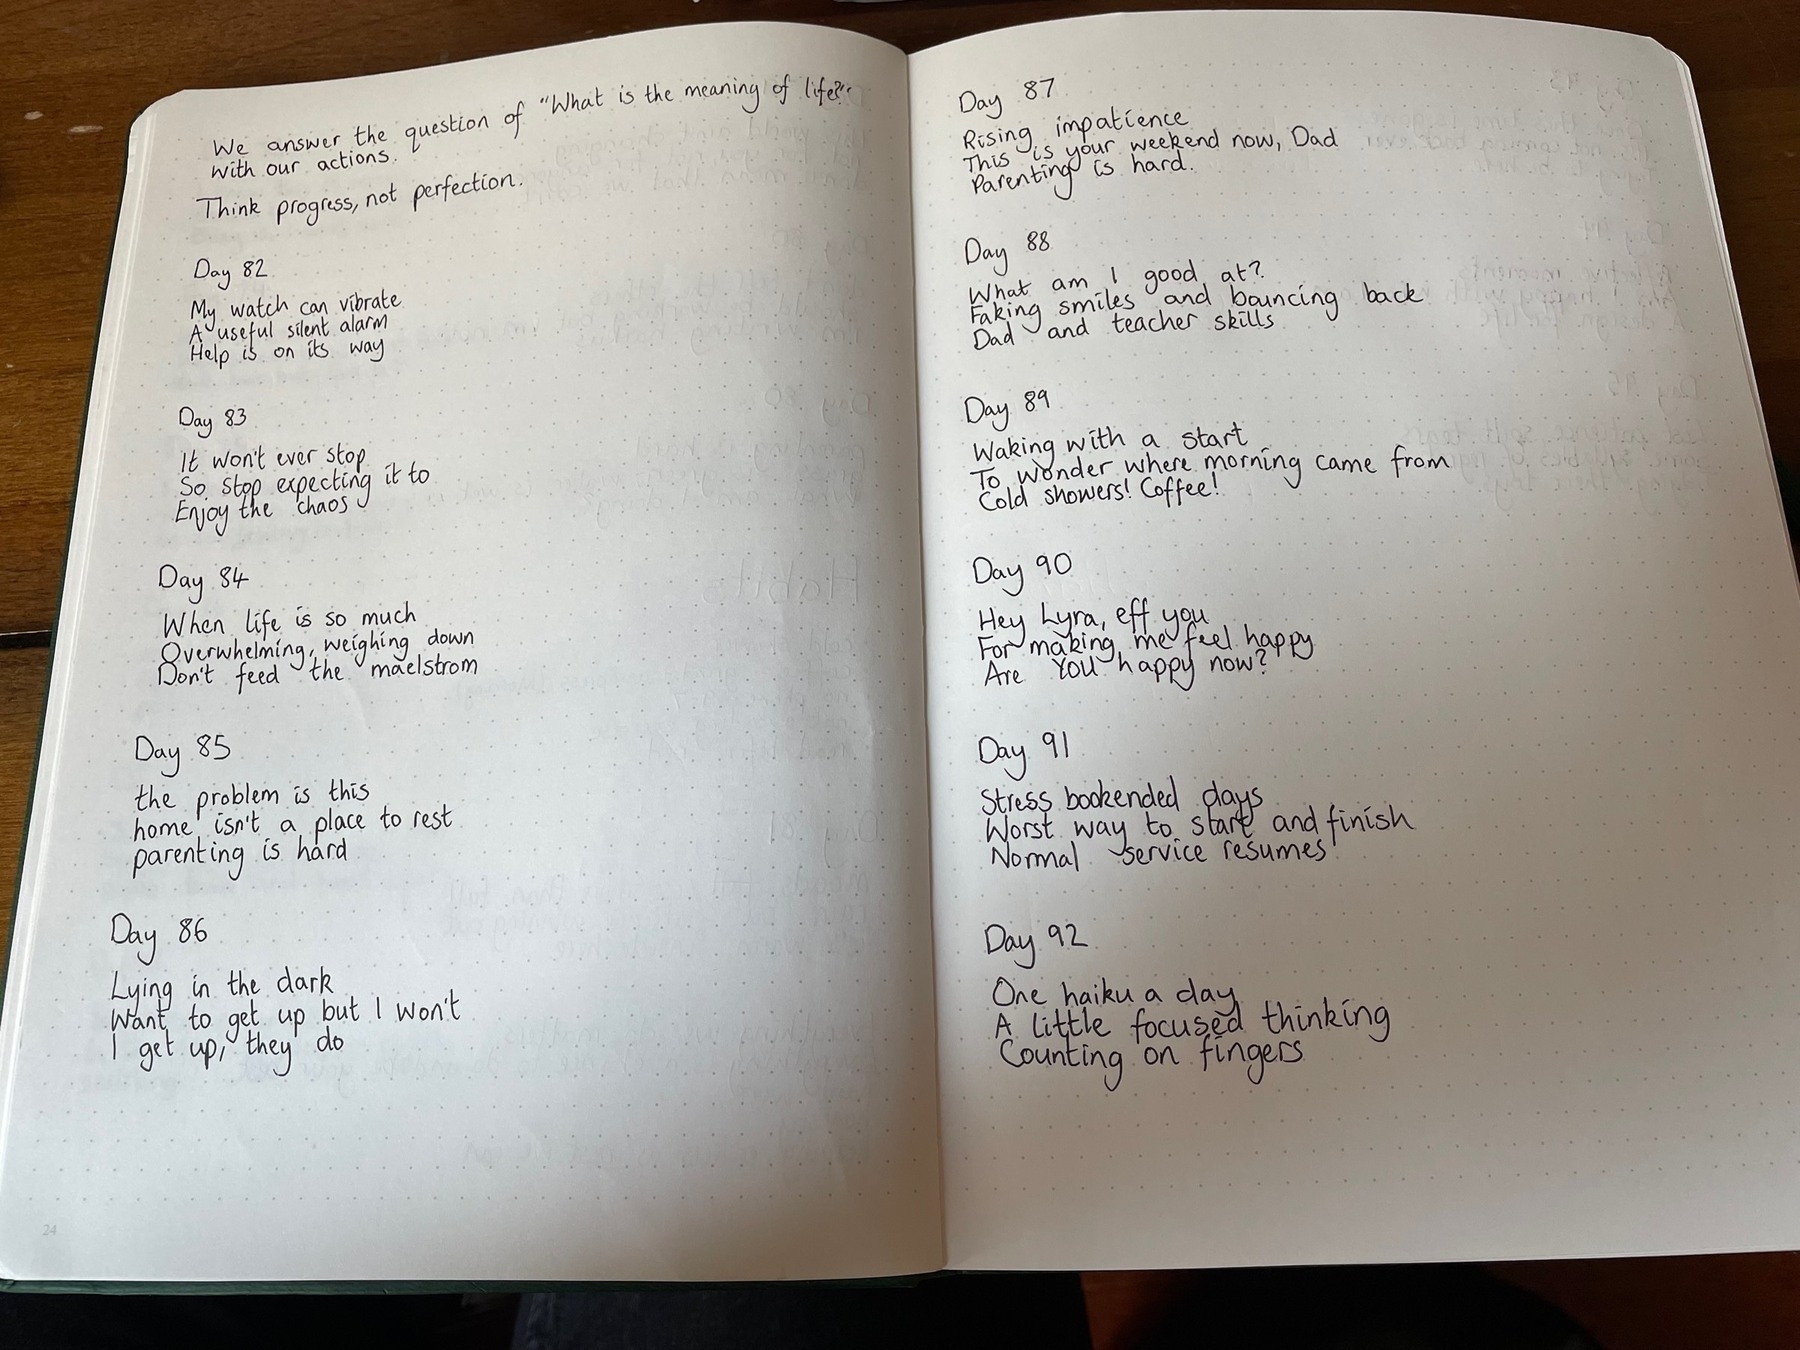 We answer the question of "What is the meaning of life?"
with our actions.
Think progress, not perfection.
Day 82
My watch can vibrate
A useful silent alarm
Help is on its way
Day 83
It won't ever stop
So stop expecting it to
Enjoy the chaos
Day 84
When life is so much
Overwhelming, weighing down
Don't feed the maelstrom
Day 85
the problem is this
home isn't a place to rest
parenting is hard
Day 86
Lying in the dark
Want to get up but I won't
I get up, they do
24
Day 87
Rising impatience
This is your weekend now, Dad
Parenting is hard.
Day 88
What am I good at?
Faking smiles and bouncing back
Dad and teacher skills
Day 89
Waking with a start
To wonder where morning came from
Cold showers! Coffee!
Day 90
Hey Lyra, eff you
For making me feel happy
Are YOU happy now?
Day 91
Stress bookended days
Worst way to start and finish
Normal service resumes
Day 92
One haiku a day
A little focused thinking
Counting on fingers